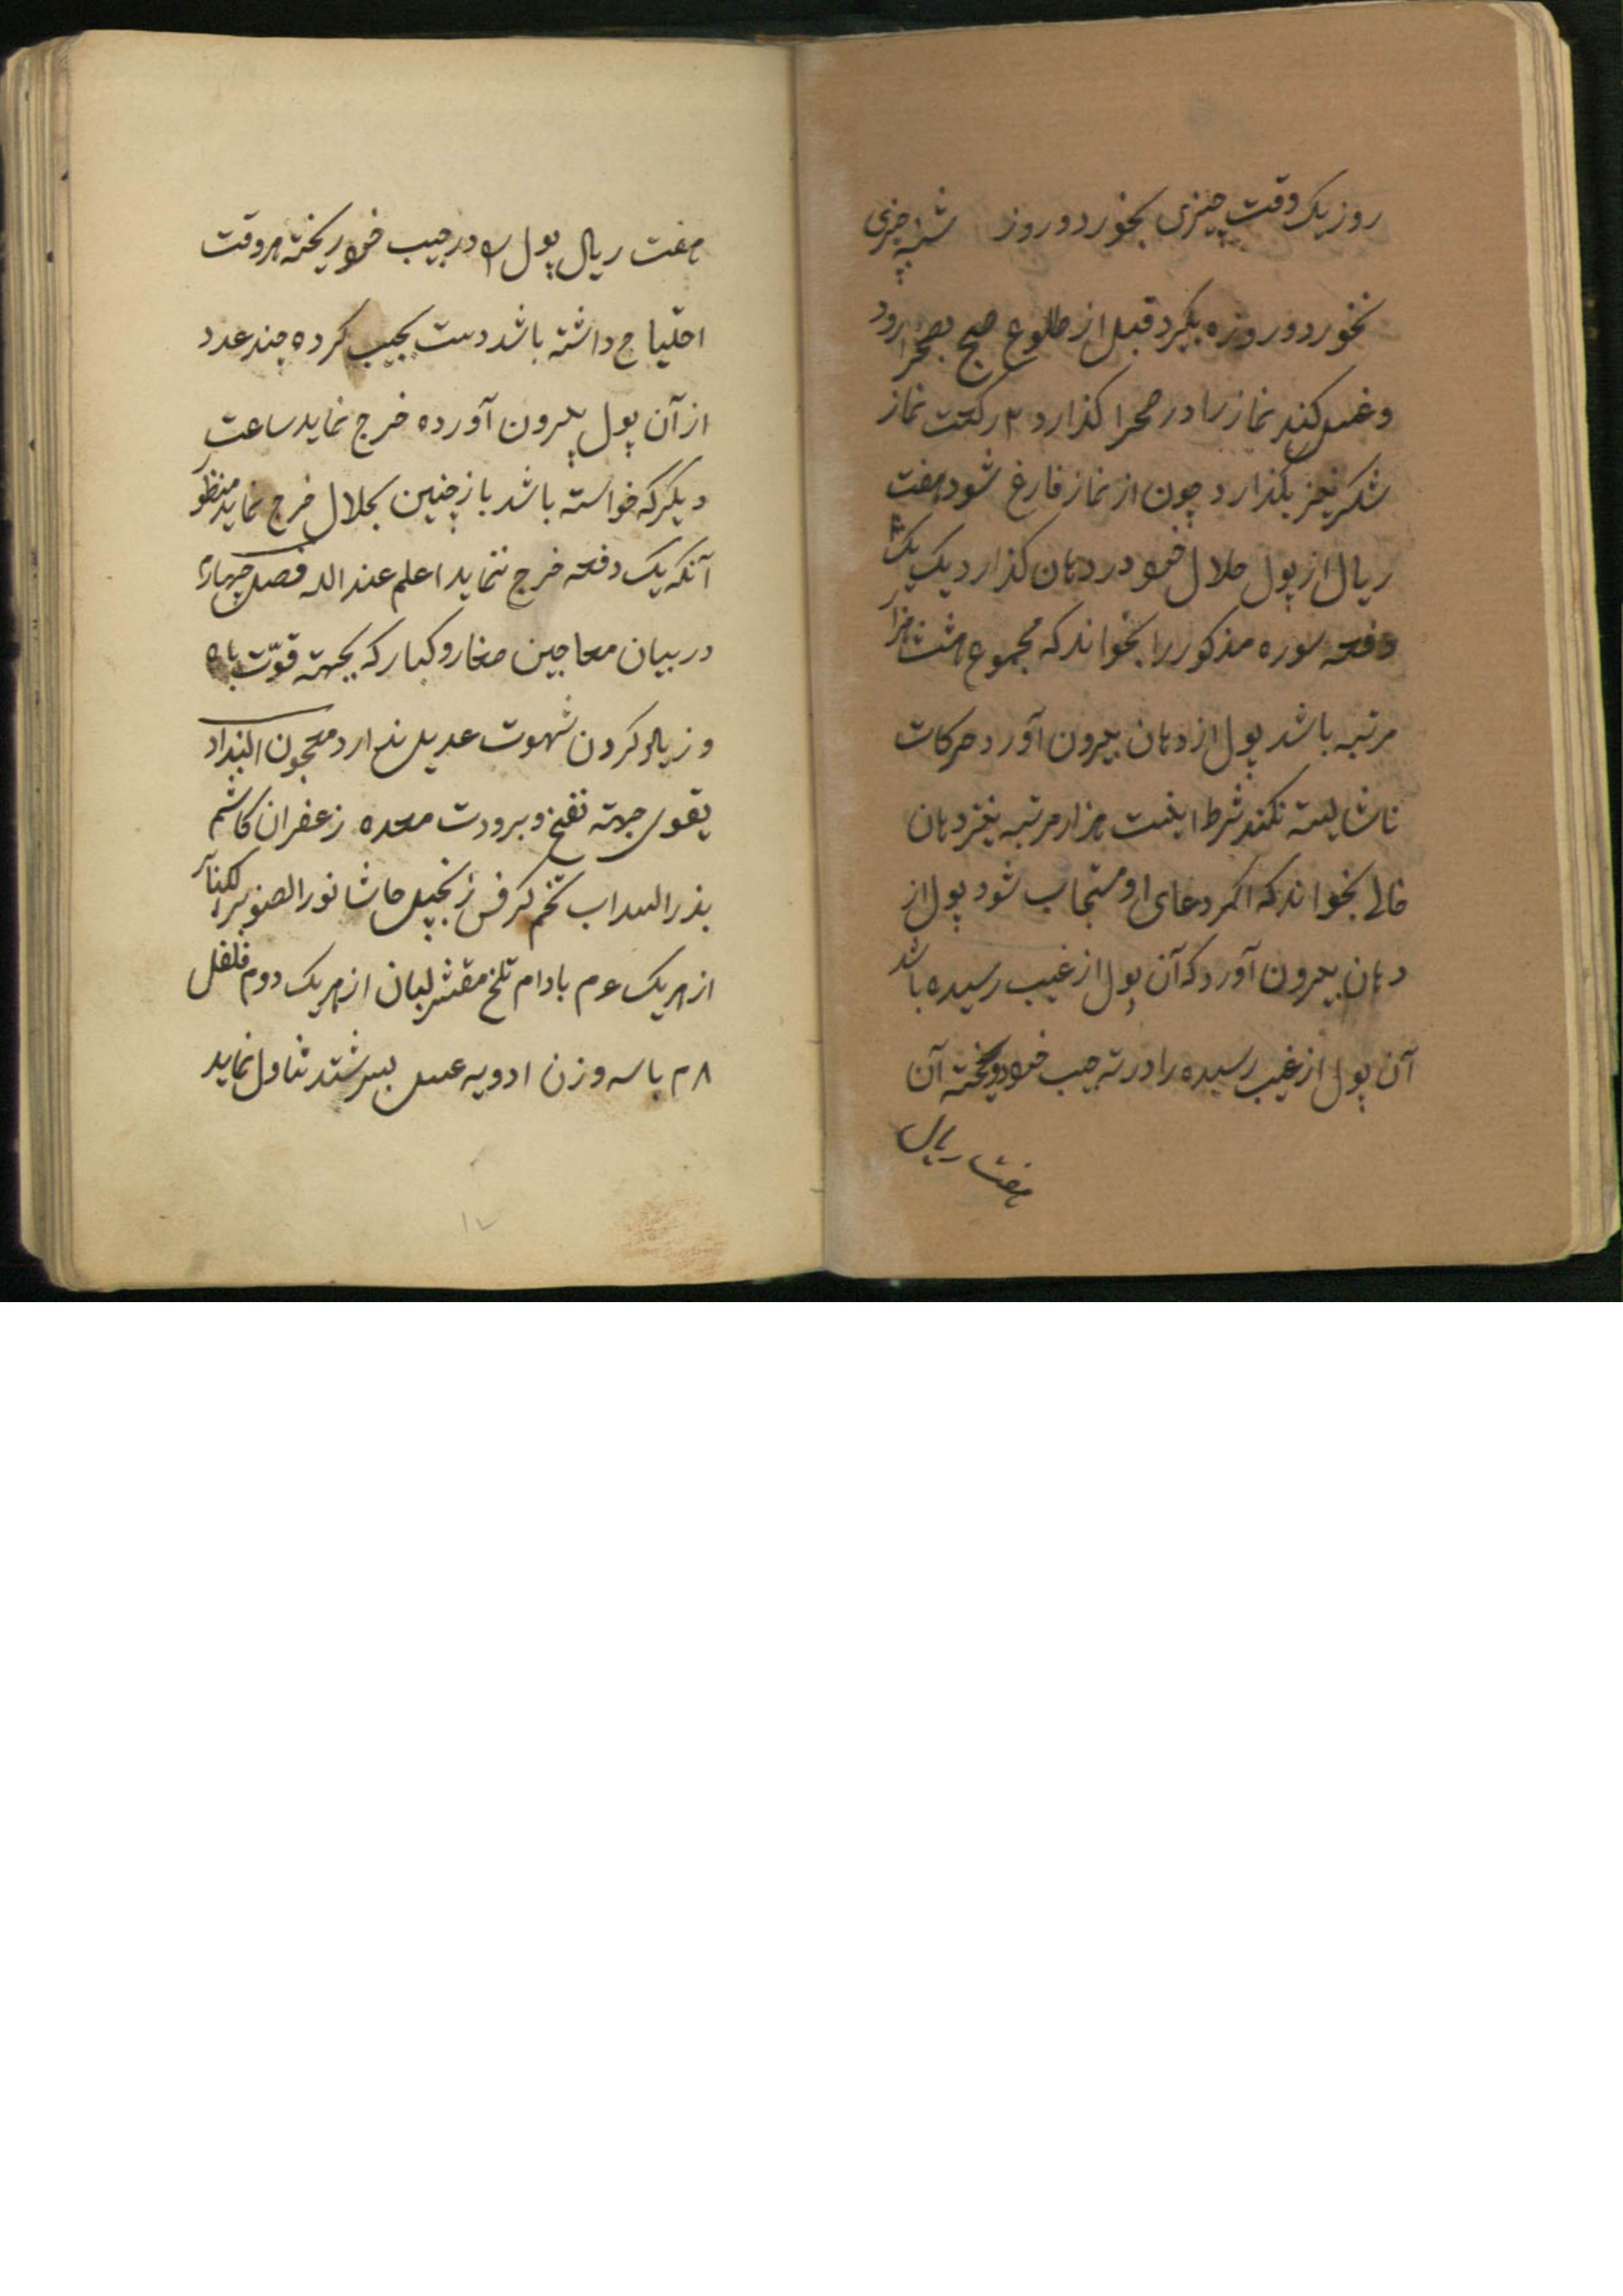 روز یک وقت چیزی بخورد و روز شنبه چیزی
نخورد و روزه بگیرد قبل از طلوع صبح بصحرا رود
و غسل کند نماز را در صحرا گذارد ۲ رکعت نماز
شکر نیز بگذارد چون از نماز فارغ شود هفت
ریال از پول حلال خود در دهان گذارد یک یک
دفعه سوره مذکور را بخواند که مجموع هشت هزار
مرتبه باشد پول از دهان بیرون آورد حرکات
ناشایسته نکند شرط اینست هزار مرتبه بغیر دهان
خالی بخواند که اگر دعای او مستجاب شود پول از
دهان بیرون آورد که آن پول از غیب رسیده باشد
آن پول از غیب رسیده را در ته جیب خود دوخته آن
هفت ریال
هفت ریال پول را در جیب خود ریخته هر وقت
احتیاج داشته باشد دست بجیب کرده چند عدد
از آن پول بیرون آورده خرج نماید ساعت
دیگر که خواسته باشد باز چنین بجلال خرج نماید منظور
آنکه یک دفعه خرج ننماید اعلم عند الله فصل چهارم
در بیان معاجین صغار و کبار که بجهته قوّت باه
و زیاد کردن شهوت عدیل ندارد معجون
یقوی جهته نفخ و برودت معده زعفران کاشم
بذر السداب تخم کرفس زنجبیل حاشا نور الصنوبر
از هر یک ع م بادام تلخ مقشر لبان از هر یک دوم فلفل
۸ م با سه وزن ادویه عسل بسرشند تناول نماید
۱۷